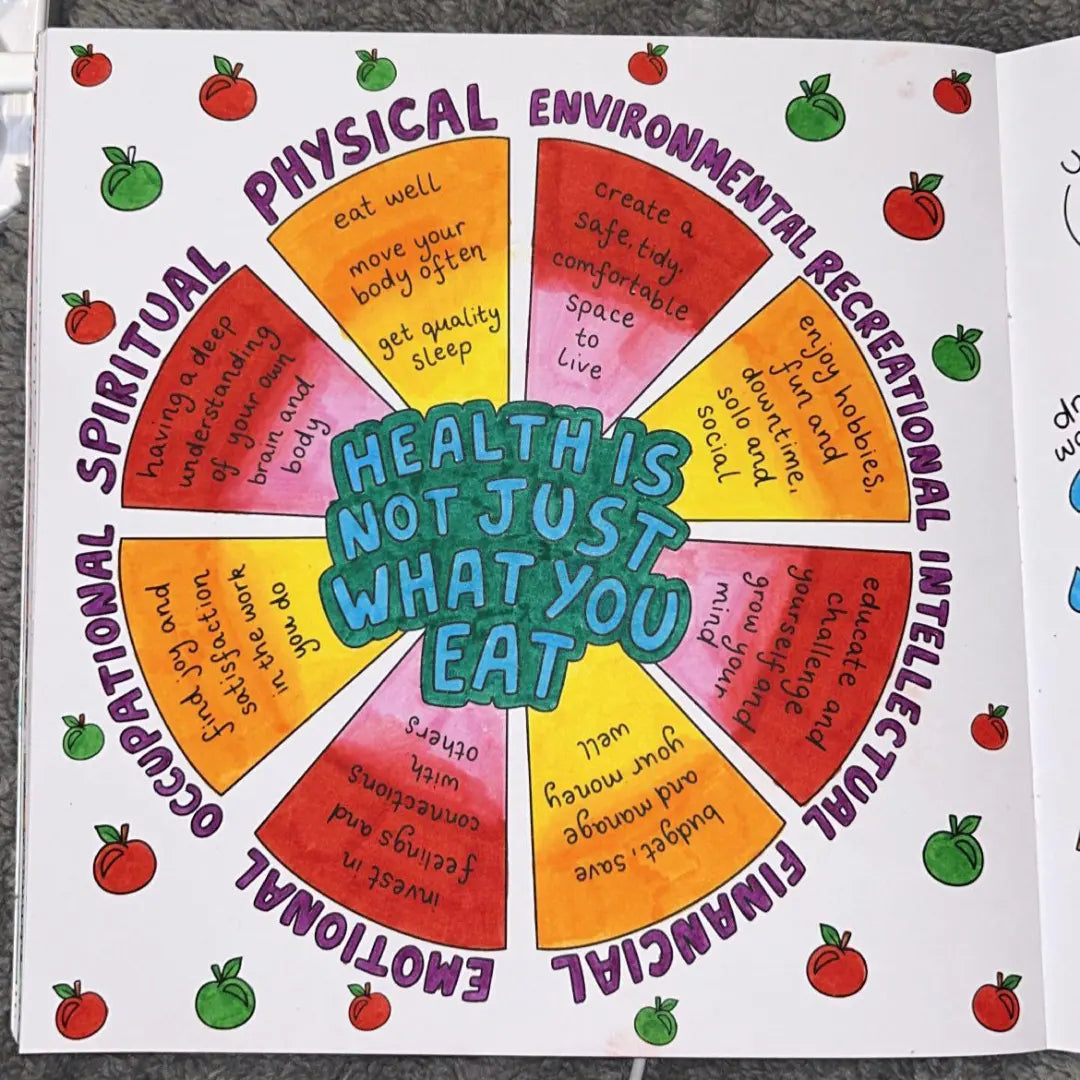 HEALTH IS
NOT JUST
WHAT YOU
EAT
PHYSICAL
eat well
move your
body often
get quality
sleep
ENVIRONMENTAL
create a
safe, tidy,
comfortable
space
to
live
RECREATIONAL
enjoy hobbies,
fun and
downtime,
solo and
social
INTELLECTUAL
educate and
challenge
yourself and
grow your
mind
FINANCIAL
budget, save
and manage
your money
well
EMOTIONAL
invest in
feelings and
connections
with
others
OCCUPATIONAL
find joy and
satisfaction
in the work
you do
SPIRITUAL
having a deep
understanding
of your own
brain and
body